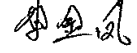 李金凤